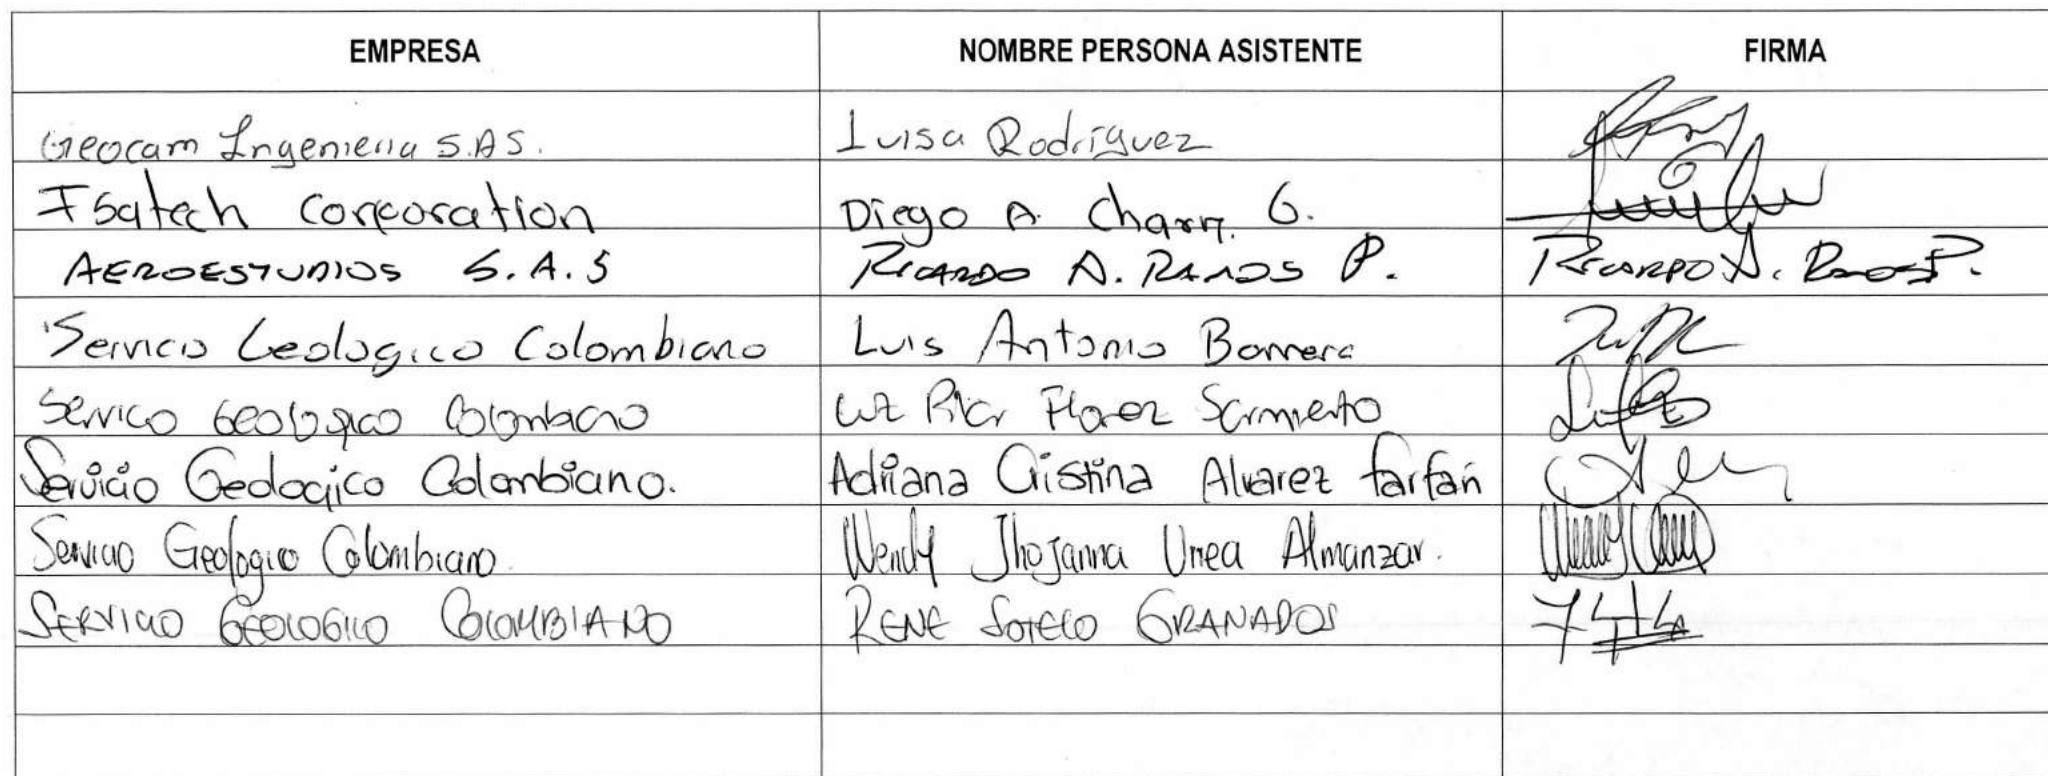 EMPRESA NOMBRE PERSONA ASISTENTE FIRMA
Geocam Ingenieria S.A.S. Luisa Rodríguez
Isatech Corporation Diego A. Charry G.
AEROESTUDIOS S.A.S RICARDO A. RAMOS P. RICARDO A. RAMOS P.
Servicio Geologico Colombiano Luis Antonio Barrera
Servico Geologico Colombiano Luz Pilar Florez Sarmiento
Servicio Geologico Colombiano. Adriana Cristina Alvarez farfán
Servicio Geologico Colombiano Wendy Jhojanna Urrea Almanzar.
SERVICIO GEOLOGICO COLOMBIANO RENE SOTELO GRANADOS